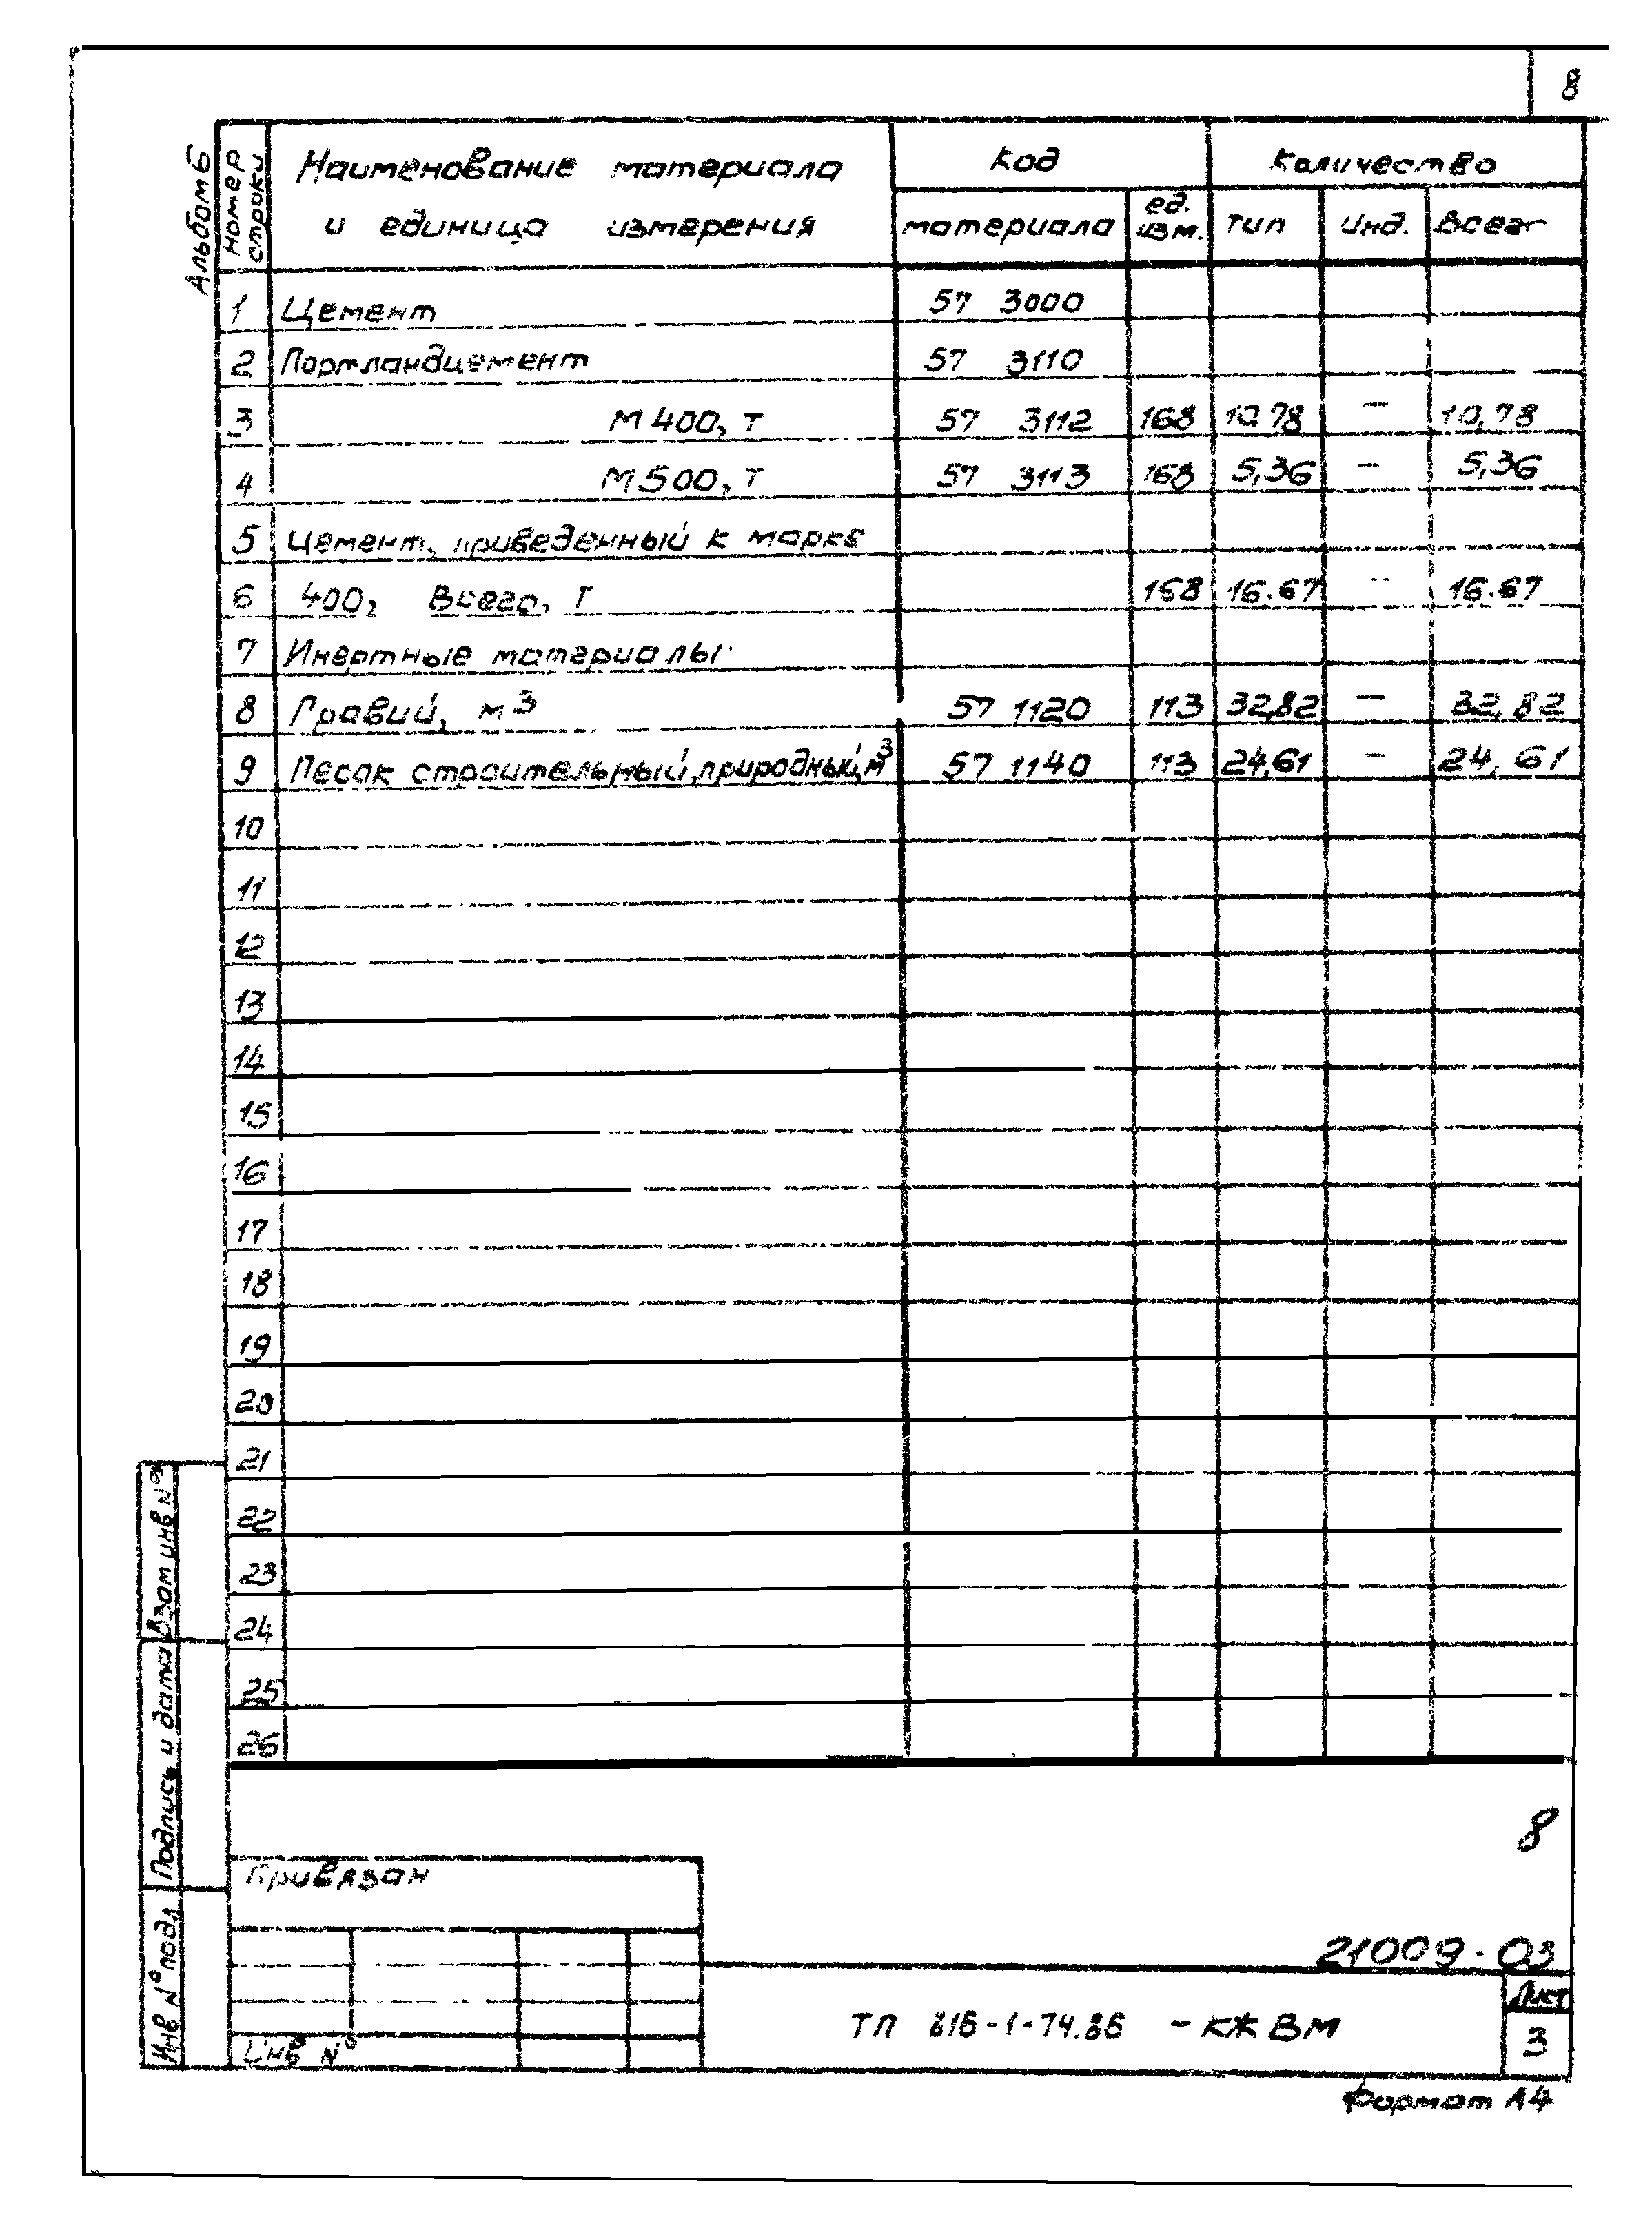 8
Альбом 6
Номер строки
Наименование материала
и единица измерения
Код
Количество
материала
ед. изм.
тип
инд.
Всего
1 Цемент 57 3000
2 Портландцемент 57 3110
3 М 400, т 57 3112 168 10.78 – 10,78
4 М 500, т 57 3113 168 5,36 – 5,36
5 Цемент, приведенный к марке
6 400, Всего, т 168 16.67 – 16.67
7 Инертные материалы
8 Гравий, м³ 57 1120 113 32,82 – 32,82
9 Песок строительный, природный, м³ 57 1140 113 24,61 – 24,61
10
11
12
13
14
15
16
17
18
19
20
21
22
23
24
25
26
Взам инв №
Подпись и дата
Инв № подл
8
Привязан
Инв №
21009-03
ТП 816-1-74.86 - КЖ ВМ
Лист
3
Формат А4